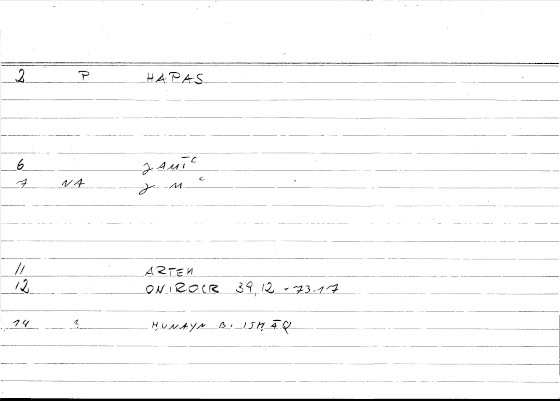 2 P HAPAS
6
7 NA
11 ARTEM
12 ONIROCR 39,12 - 73.17
14 HUNAYN B. ISḤĀQ